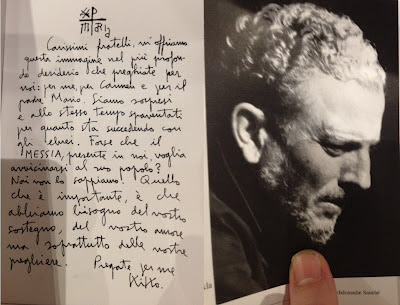 MARIA
Carissimi fratelli, vi offriamo
questa immagine nel più profon-
do desiderio che preghiate per
noi: per me, per Carmen e per il
padre Mario. Siamo sorpresi
e allo stesso tempo spaventati
per quanto sta succedendo con
gli ebrei. Forse che il
MESSIA, presente in noi, voglia
avvicinarsi al suo popolo?
Noi non lo sappiamo! Quello
che è importante, è che
abbiamo bisogno del vostro
sostegno, del vostro amore
ma soprattutto delle vostre
preghiere.
Pregate per me
Kiko.